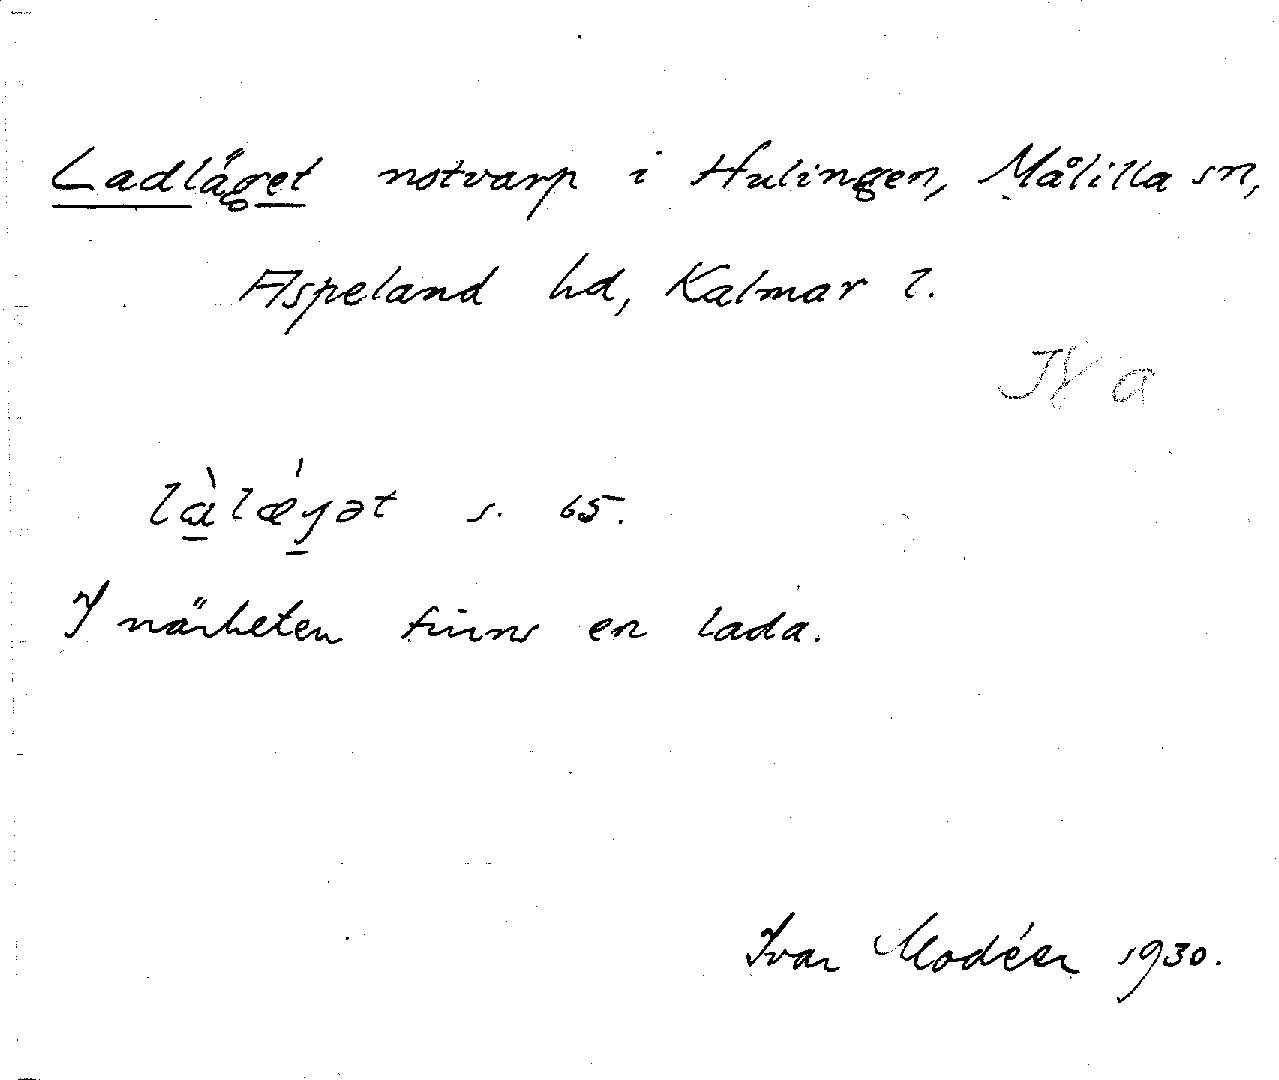 Ladläget notvarp i Hulingen, Målilla sn,
Aspeland hd, Kalmar l.
làlǽgət s. 65.
I närheten finns en lada.
Ivar Modéer 1930.